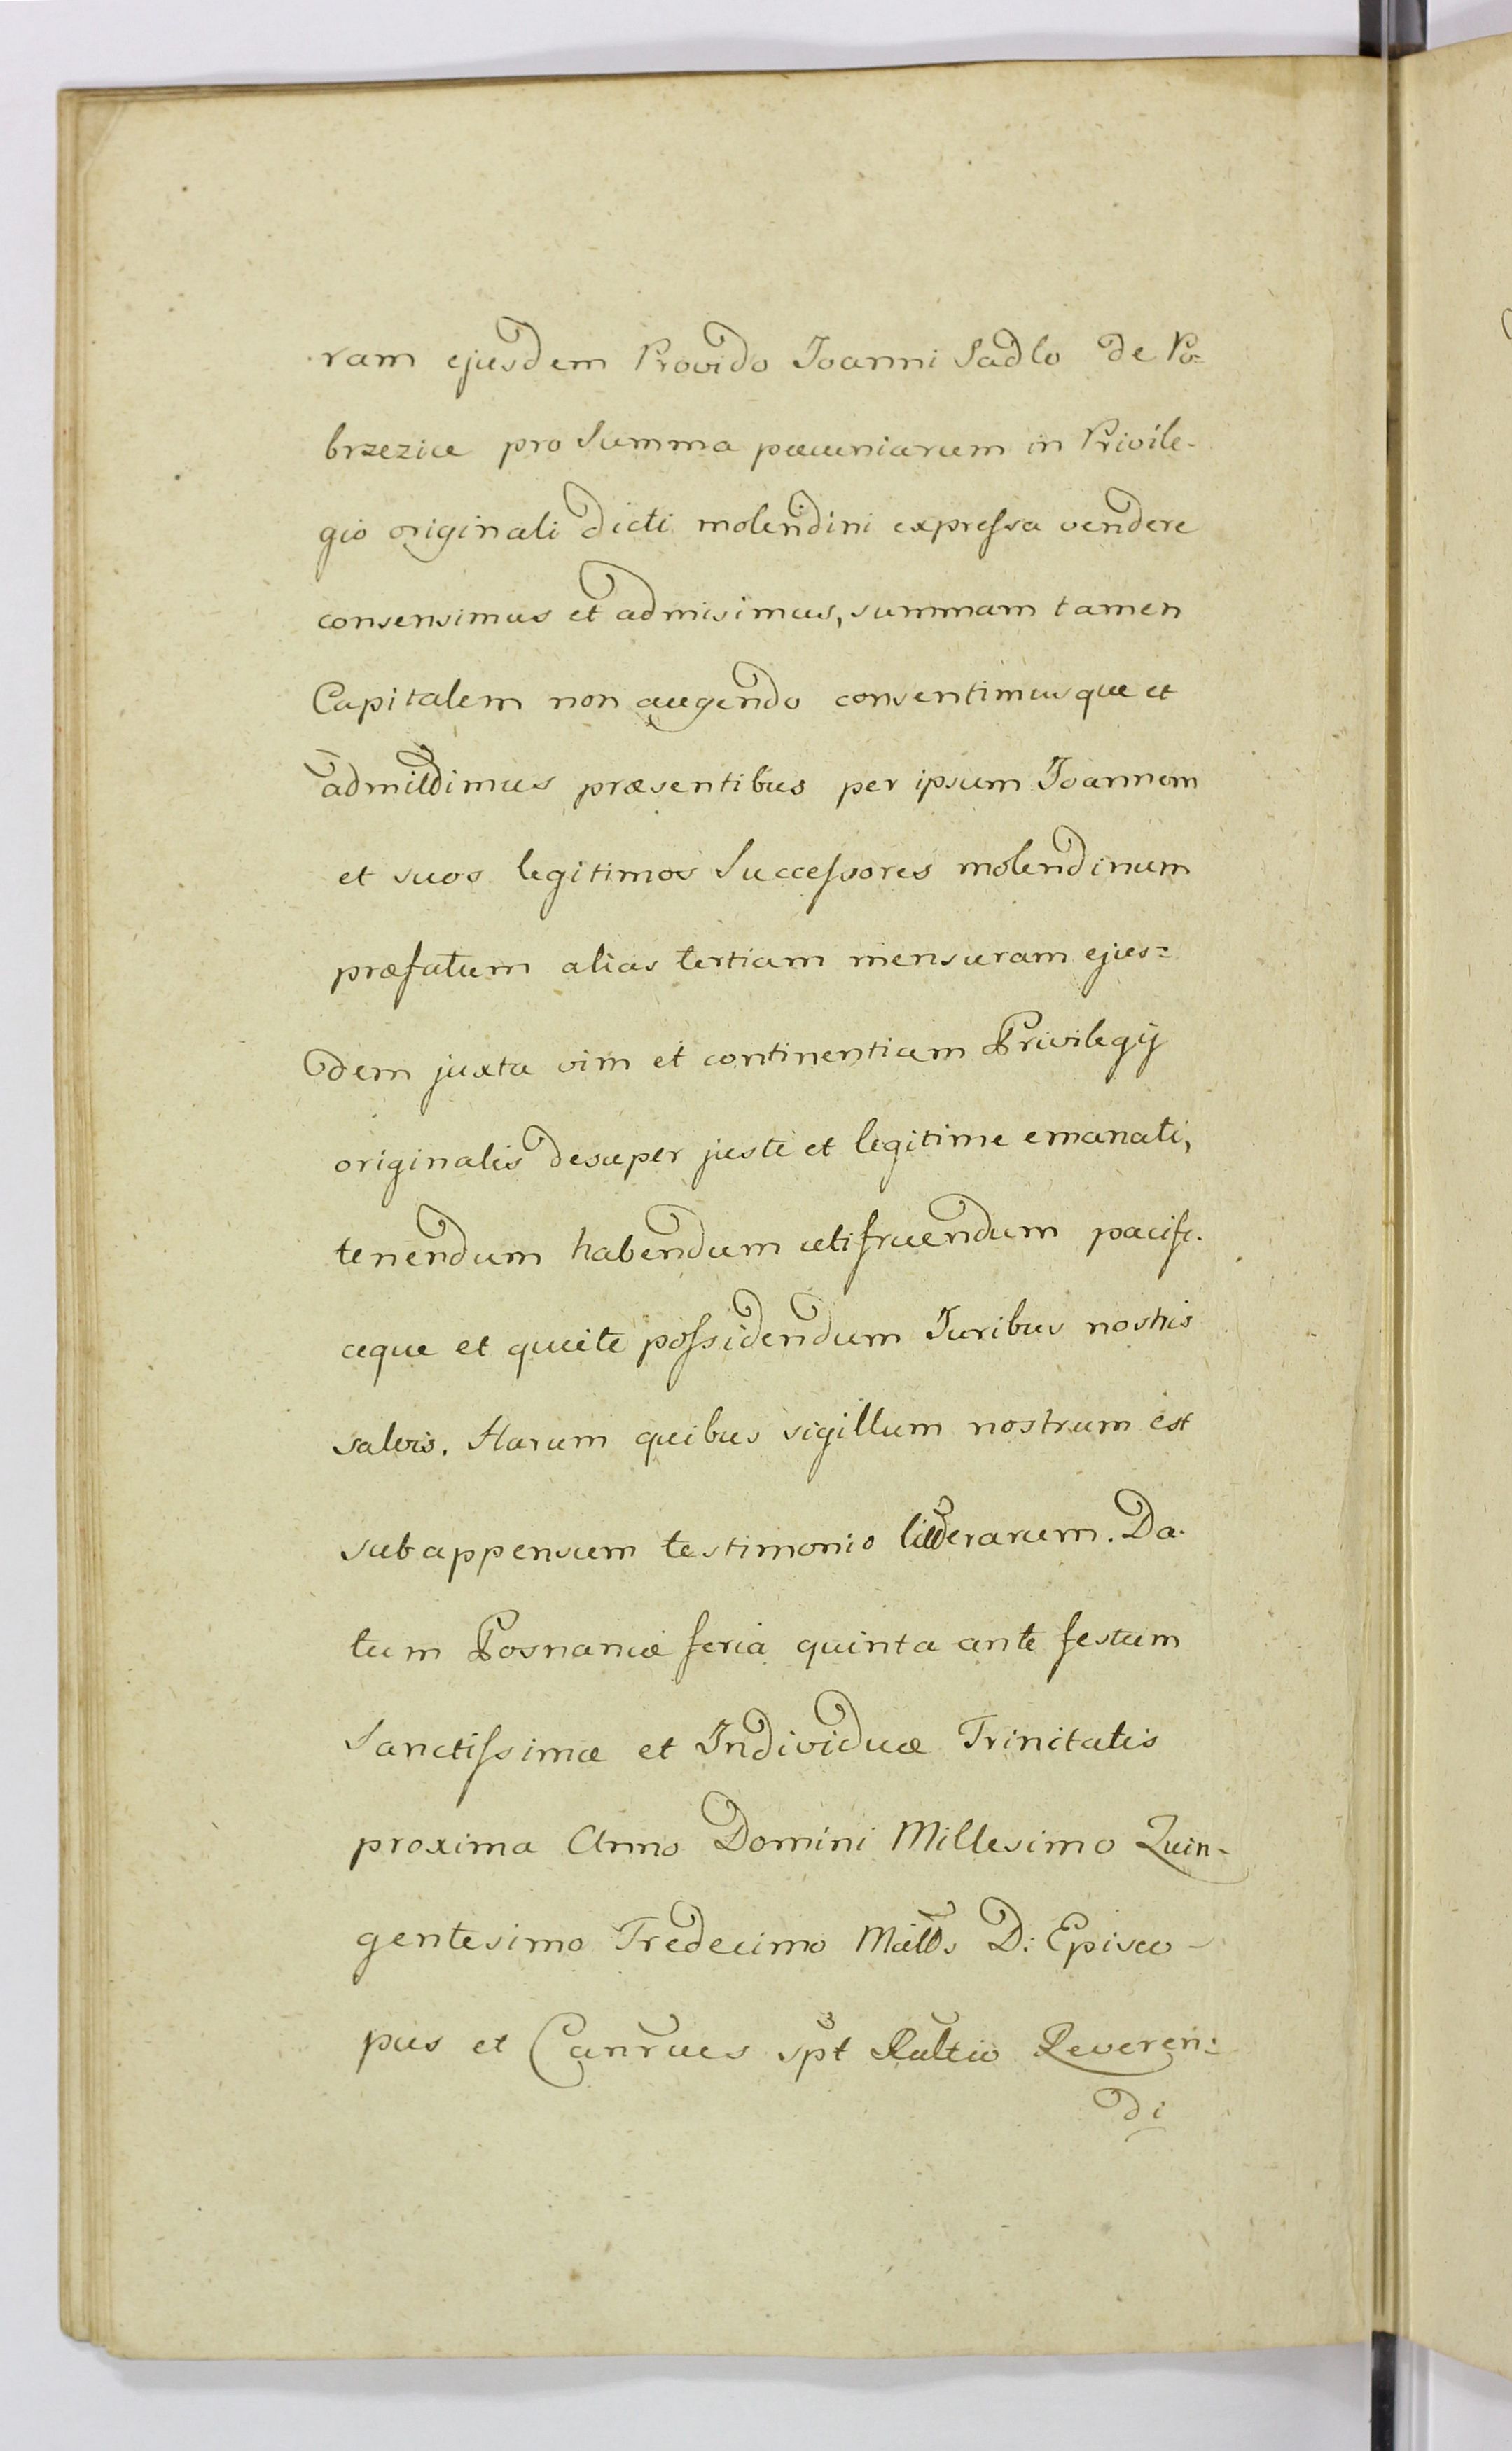 ram ejusdem Provido Joanni Sadlo de Po=
brzezice pro Summa pecuniarum in Privile-
gio originali dicti molendini expressa vendere
consensimus et admisimus, summam tamen
Capitalem non augendo consentimusque et
admittimus præsentibus per ipsum Joannem
et suos legitimos Successores molendinum
præfatum alias tertiam mensuram ejus=
dem juxta vim et continentiam Privilegij
originalis desuper juste et legitime emanati,
tenendum habendum utifruendum pacifi-
ceque et quiete possidendum Juribus nostris
salvis. Harum quibus sigillum nostrum est
subappensum testimonio litterarum. Da-
tum Posnaniæ feria quinta ante festum
Sanctissimæ et Individuæ Trinitatis
proxima Anno Domini Millesimo Quin-
gentesimo Tredecimo D: Episco-
pus et Reveren:
di